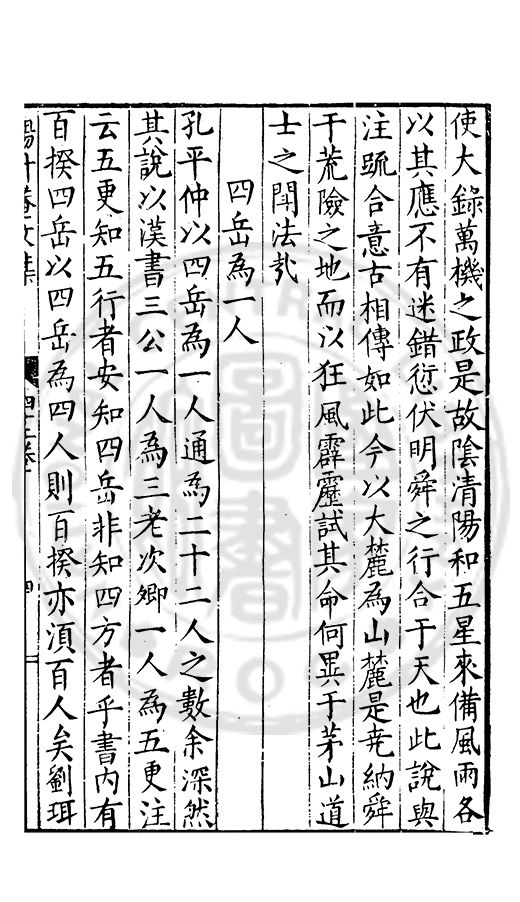 使大錄萬機之政是故陰清陽和五星來備風雨各
以其應不有迷錯愆伏明舜之行合于天也此說與
注䟽合意古相傳如此今以大麓為山麓是尭納舜
于荒險之地而以狂風霹靂試其命何異于茅山道
士之鬪法㢤
四岳為一人
孔平仲以四岳為一人通為二十二人之數余深然
其說以漢書三公一人為三老次卿一人為五更注
云五更知五行者安知四岳非知四方者乎書內有
百揆四岳以四岳為四人則百揆亦湏百人矣劉珥